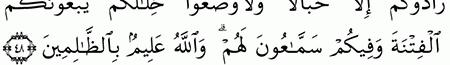 زَادُوكُمْ إِلَّا خَبَالًا وَلَأَوْضَعُوا۟ خِلَـٰلَكُمْ يَبْغُونَكُمُ
ٱلْفِتْنَةَ وَفِيكُمْ سَمَّـٰعُونَ لَهُمْ ۗ وَٱللَّهُ عَلِيمٌۢ بِٱلظَّـٰلِمِينَ ٤٨